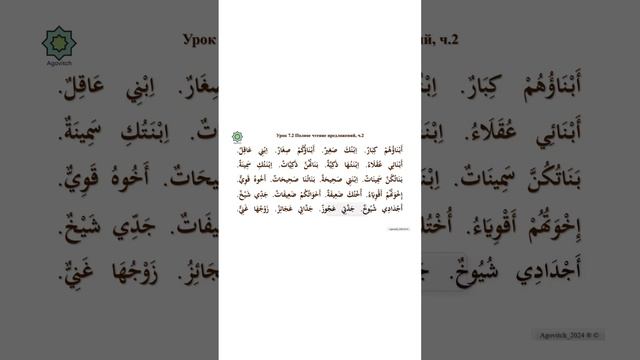 Agovitch
Урок 7.2 Полное чтение предложений, ч.2
أَبْنَاؤُهُمْ كِبَارٌ. اِبْنُكَ صَغِيرٌ. أَبْنَاؤُكُمْ صِغَارٌ. اِبْنِي عَاقِلٌ.
أَبْنَائِي عُقَلَاءُ. اِبْنَتُهَا ذَكِيَّةٌ. بَنَاتُهُنَّ ذَكِيَّاتٌ. اِبْنَتُكِ سَمِينَةٌ.
بَنَاتُكُنَّ سَمِينَاتٌ. اِبْنَتِي صَحِيحَةٌ. بَنَاتُنَا صَحِيحَاتٌ. أَخُوهُ قَوِيٌّ.
إِخْوَتُهُمْ أَقْوِيَاءُ. أُخْتُكَ ضَعِيفَةٌ. أَخَوَاتُكُمْ ضَعِيفَاتٌ. جَدِّي شَيْخٌ.
أَجْدَادِي شُيُوخٌ. جَدَّتِي عَجُوزٌ. جَدَّاتِي عَجَائِزُ. زَوْجُهَا غَنِيٌّ.
Agovitch_2024 ® ©